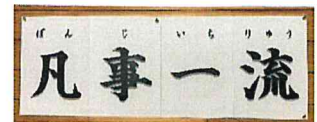 ぼんじいちりゅう
凡事一流